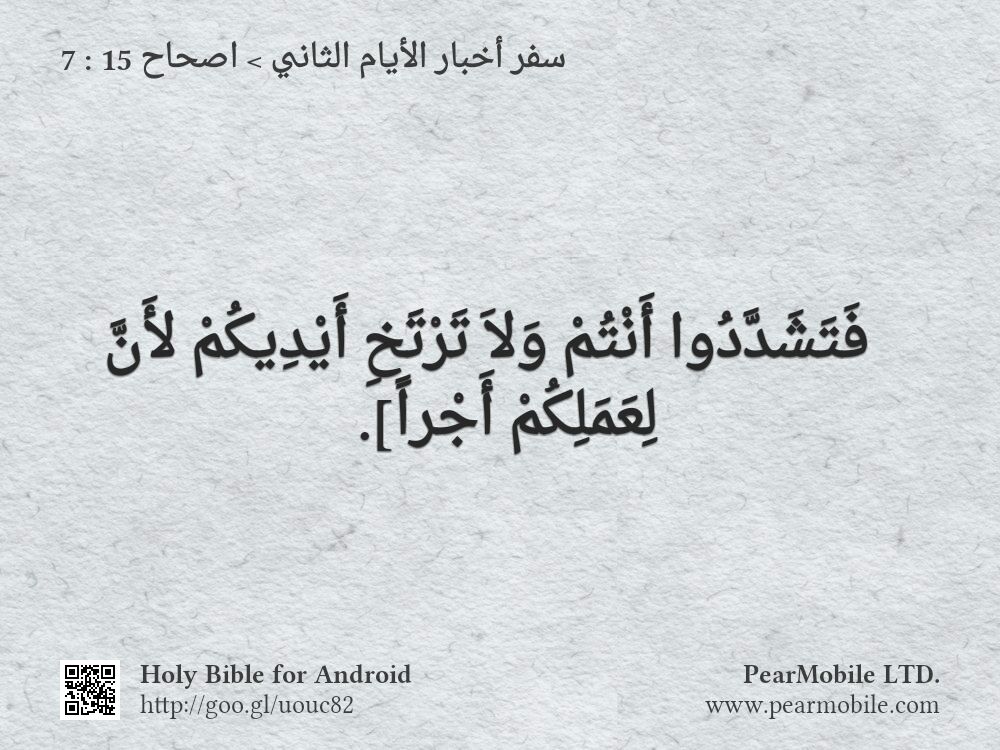 سفر أخبار الأيام الثاني > اصحاح 15 : 7
فَتَشَدَّدُوا أَنْتُمْ وَلاَ تَرْتَخِ أَيْدِيكُمْ لأَنَّ
لِعَمَلِكُمْ أَجْراً].
Holy Bible for Android
http://goo.gl/uouc82
PearMobile LTD.
www.pearmobile.com